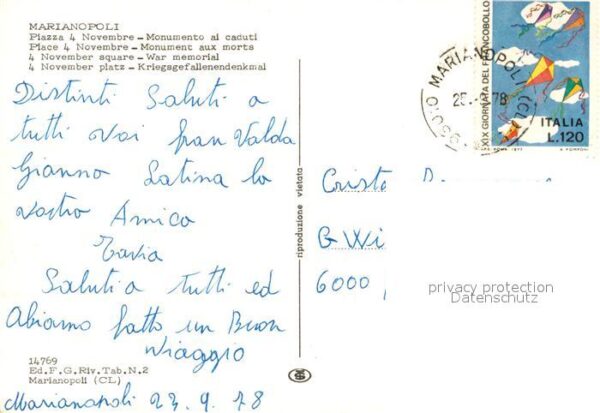 MARIANOPOLI
Piazza 4 Novembre - Monumento ai caduti
Place 4 Novembre - Monument aux morts
4 November square - War memorial
4 November platz - Kriegsgefallenendenkmal
Distinti Saluti a
tutti voi fran Valda
Gianno Latina la
vostro Amico
Tavia
Saluti a tutti ed
Abiamo fatto un Buon
viaggio
14769
Ed. F. G. Riv. Tab. N. 2
Marianopoli (CL)
Marianopoli 23. 9. 78
riproduzione vietata
XIX GIORNATA DEL FRANCOBOLLO
ITALIA
L.120
93010 MARIANOPOLI (CL)
78
Cristo D
G Wi
6000,
privacy protection
Datenschutz